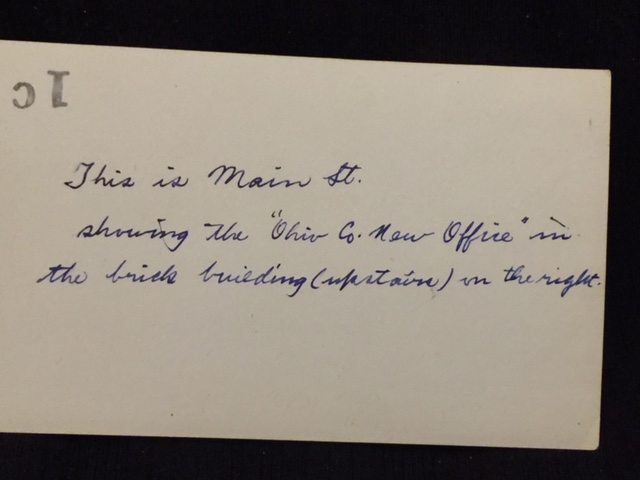 1c
This is Main St.
showing the "Ohio Co. New Office" in
the brick building (upstairs) on the right.